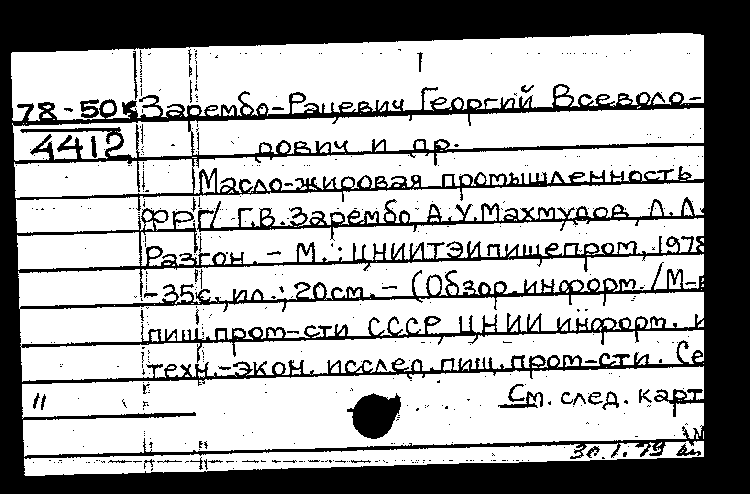 I
78-50к Зарембо-Рацевич, Георгий Всеволо-
4412 дович и др.
Масло-жировая промышленность
ФРГ/ Г.В.Зарембо, А.У.Махмудов, Л.Л.
Разгон. – М.: ЦНИИТЭИпищепром, 1978
-35с., ил.; 20см. – (Обзор. информ. / М-в
пищ. пром-сти СССР, ЦНИИ информ. и
техн.-экон. исслед. пищ. пром-сти. Се
11 См. след. карт
30.1.79